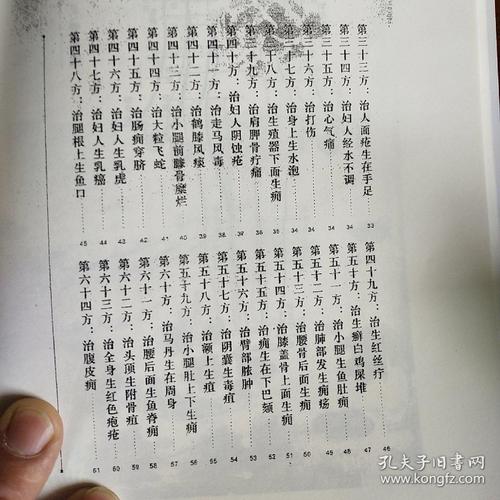 第三十三方：治人面疮生在手足……33
第三十四方：治妇人经水不调……34
第三十五方：治心气痛……34
第三十六方：治打伤……34
第三十七方：治身上生水泡……35
第三十八方：治生殖器下面生痈……36
第三十九方：治肩胛骨疔痛……36
第四十方：治妇人阴蚀疮……37
第四十一方：治走马风毒……38
第四十二方：治鹤膝风痰……39
第四十三方：治小腿前臁骨糜烂……40
第四十四方：治大粒飞蛇……41
第四十五方：治肠痈穿脐……42
第四十六方：治妇人生乳虎……43
第四十七方：治妇人生乳癌……44
第四十八方：治腿根上生鱼口……45
第四十九方：治生红丝疔……46
第五十方：治生癣白鸡屎堆……47
第五十一方：治小腿生鱼肚痈……48
第五十二方：治肺部发生痈疡……49
第五十三方：治腰骨后面生痈……50
第五十四方：治膝盖骨上面生痈……51
第五十五方：治痈生在下巴颏……52
第五十六方：治臂部脓肿……53
第五十七方：治阴囊生毒疽……54
第五十八方：治额上生疽……55
第五十九方：治小腿肚上下生痈……56
第六十方：治马丹生在周身……57
第六十一方：治腰后面生鱼脊痈……58
第六十二方：治头顶生附骨疽……59
第六十三方：治全身生红色疱疮……60
第六十四方：治腹皮痈……61
孔夫子旧书网
www.kongfz.com